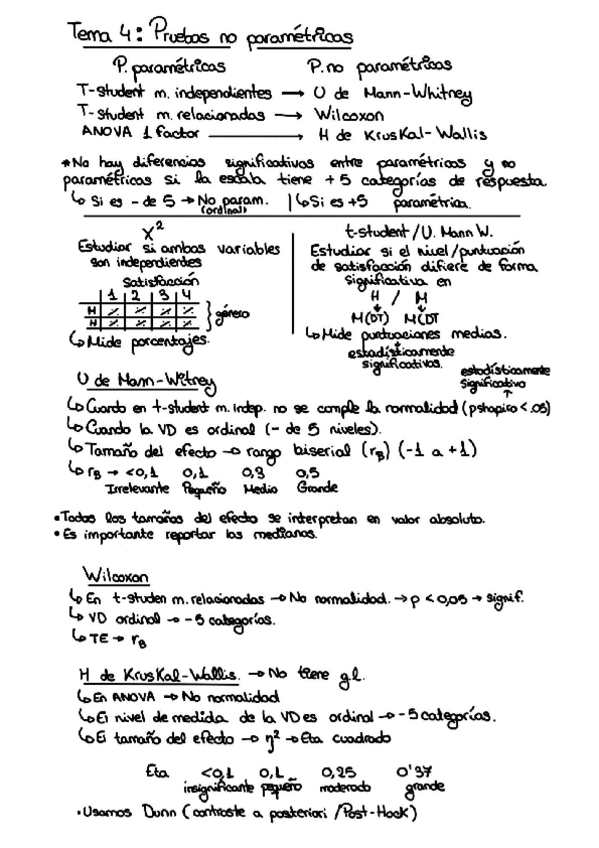 Tema 4: Pruebas no paramétricas
P. paramétricas P. no paramétricas
T-student m. independientes → U de Mann-Whitney
T-student m. relacionadas → Wilcoxon
ANOVA 1 factor → H de Kruskal-Wallis
*No hay diferencias significativas entre paramétricas y no
paramétricas si la escala tiene +5 categorías de respuesta.
↳ Si es - de 5 → No param. | ↳ Si es +5 paramétrica.
(ordinal)
X²
Estudiar si ambas variables
son independientes
Satisfacción
1 2 3 4
H % % % %
M % % % %
} género
↳ Mide porcentajes.
t-student / U. Mann W.
Estudiar si el nivel/puntuación
de satisfacción difiere de forma
significativa en
H / M
M(DT) M(DT
↳ Mide puntuaciones medias.
estadísticamente
significativas.
U de Mann-Witney
estadísticamente
significativo
↳ Cuando en t-student m. indep. no se cumple la normalidad (pshapiro < .05)
↳ Cuando la VD es ordinal (- de 5 niveles).
↳ Tamaño del efecto → rango biserial (rB) (-1 a +1)
↳ rB → <0,1 0,1 0,3 0,5
Irrelevante Pequeño Medio Grande
• Todos los tamaños del efecto se interpretan en valor absoluto.
• Es importante reportar las medianas.
Wilcoxon
↳ En t-studen m. relacionadas → No normalidad. → p < 0,05 → signif.
↳ VD ordinal → - 5 categorías.
↳ TE → rB
H de Kruskal-Wallis. → No tiene g.l.
↳ En ANOVA → No normalidad
↳ El nivel de medida de la VD es ordinal → - 5 categorías.
↳ El tamaño del efecto → η² → Eta cuadrado
Eta <0,1 0,1 0,25 0'37
insignificante pequeño moderado grande
• Usamos Dunn (contraste a posteriori / Post-Hock)